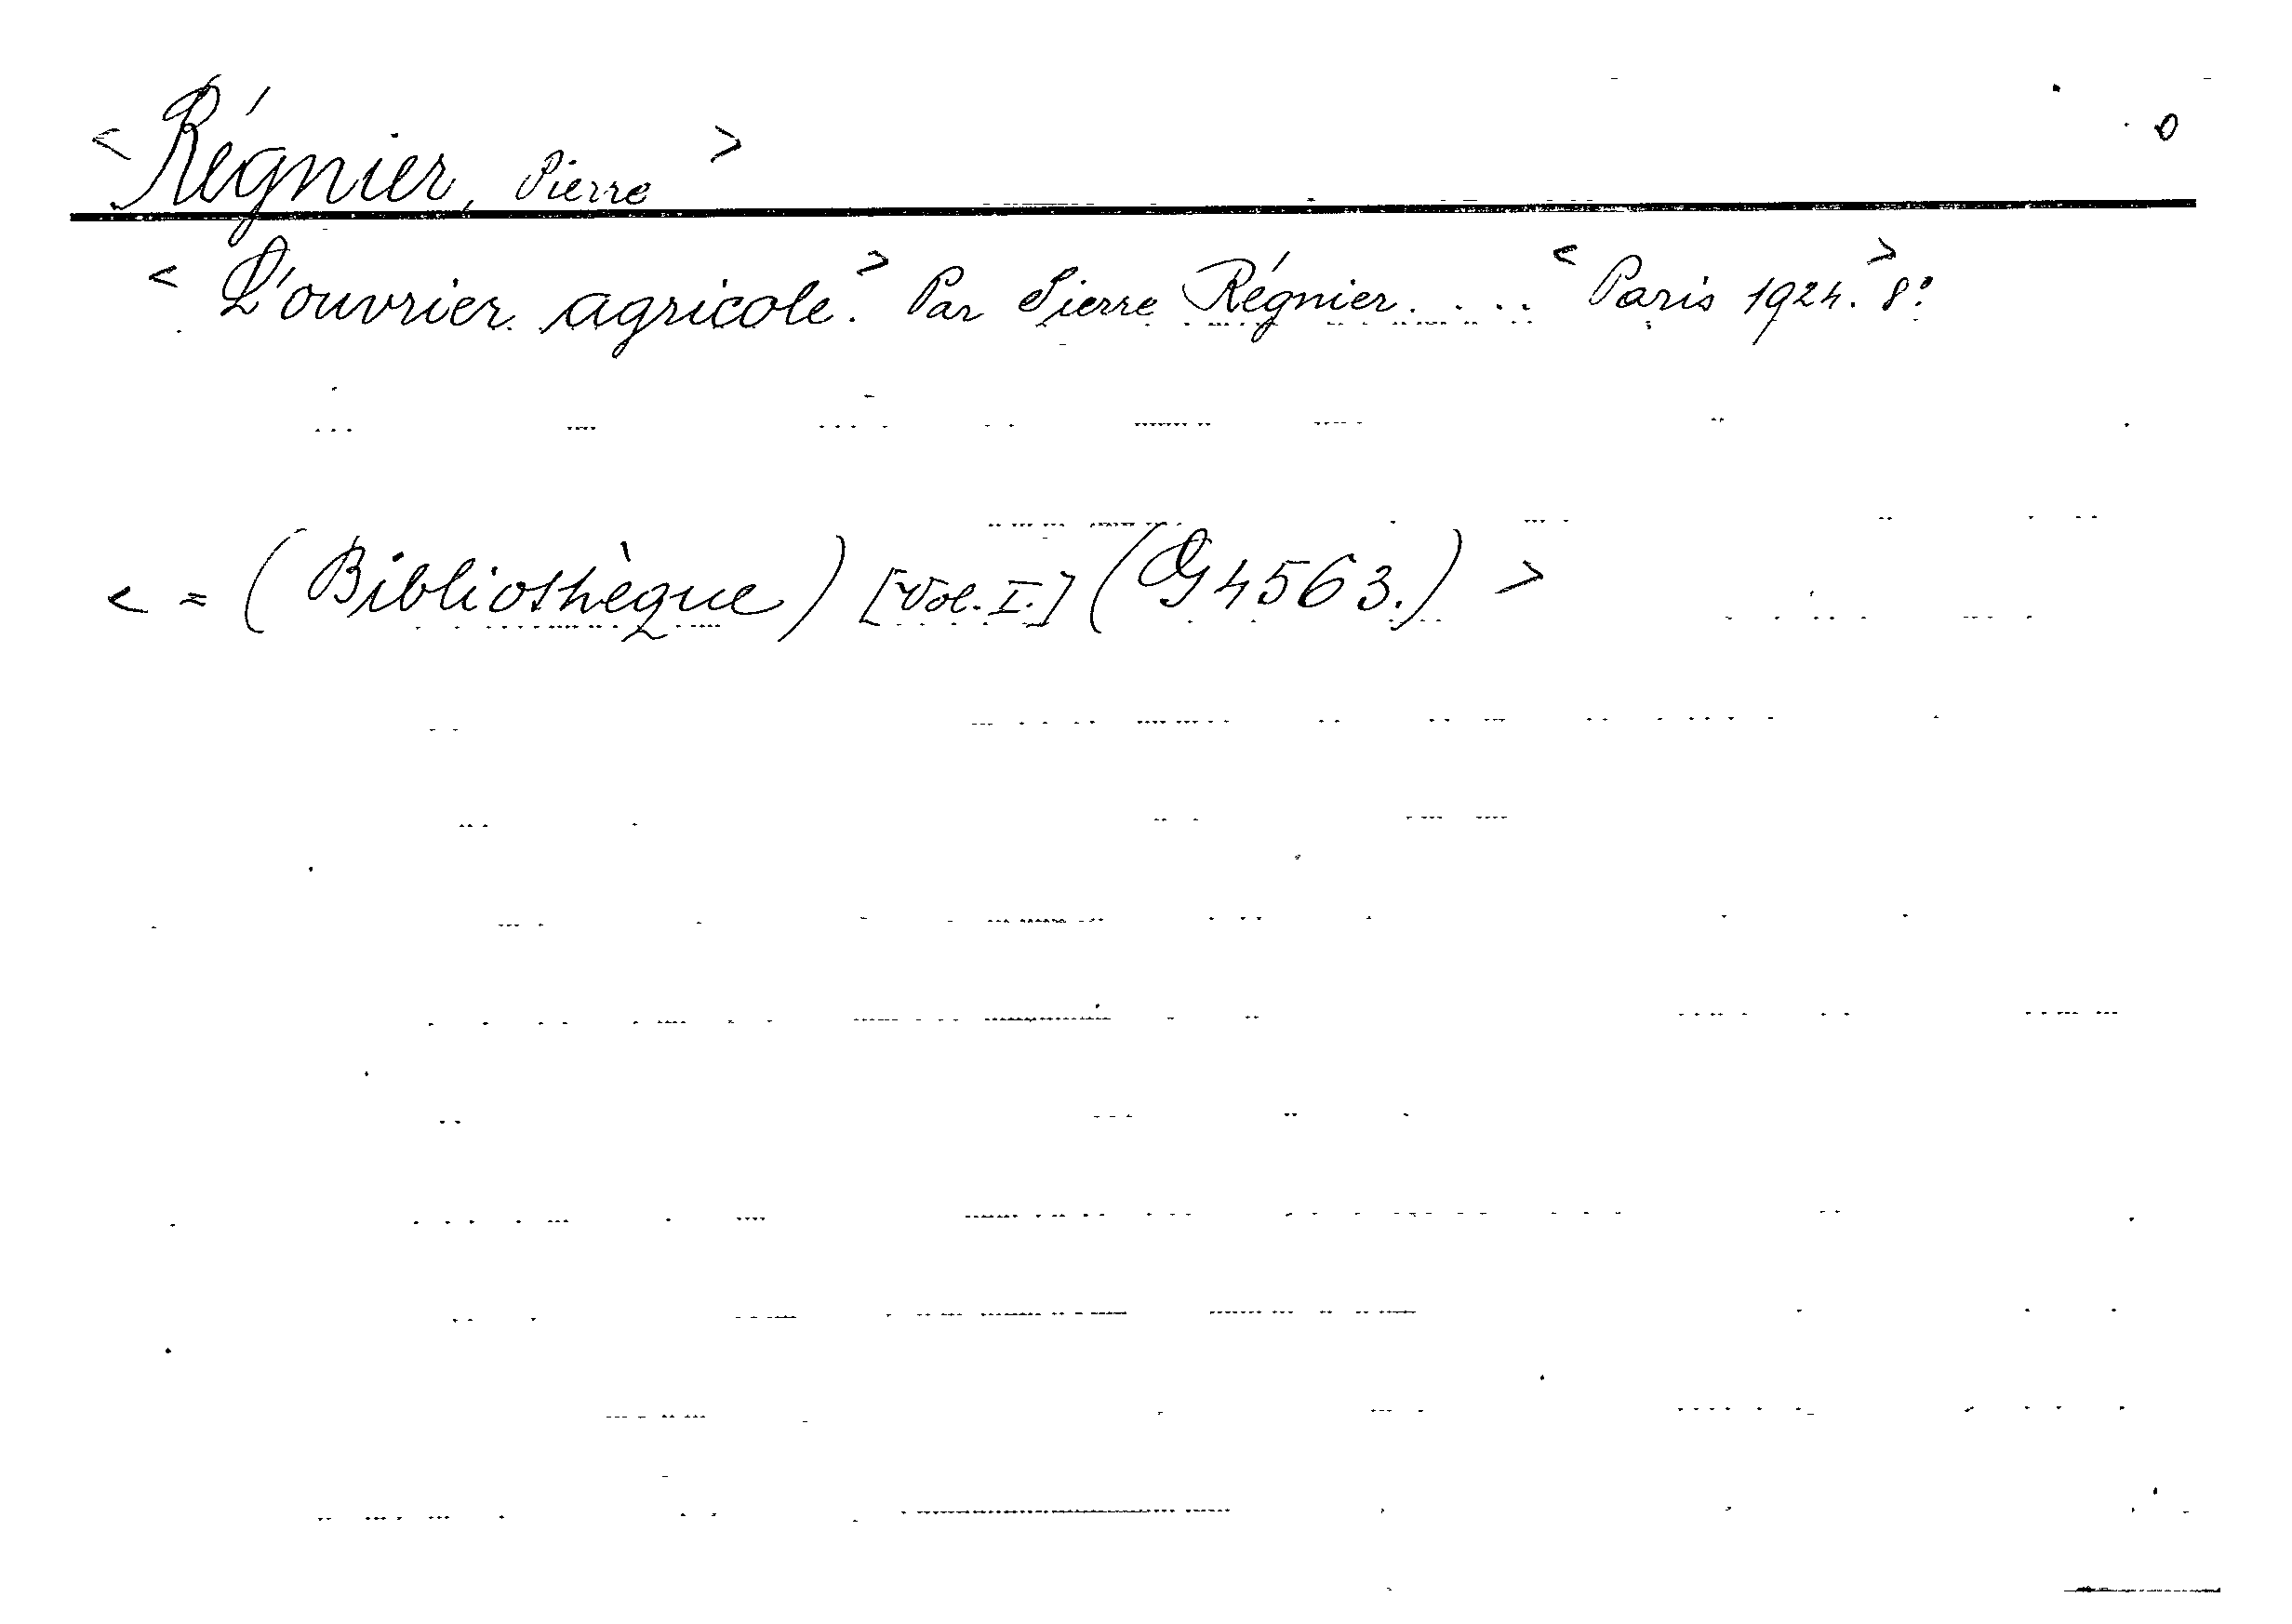 < Régnier, Pierre > 0
< L'ouvrier agricole.> Par Pierre Régnier. . . . < Paris 1924.> 8º
< = (Bibliothèque) [Vol. I.] (G 4563.) >